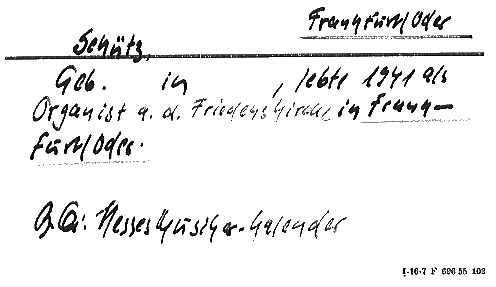 Frankfurt/Oder
Schütz,
Geb. in , lebte 1941 als
Organist a. d. Friedenskirche in Frank-
furt/Oder.
Hesses Musiker-Kalender
I-16-7 F 696 55 102